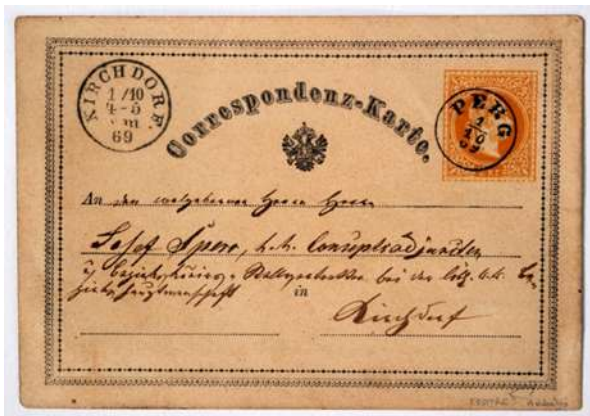 KIRCHDORF
1/10
4-5
69
Correspondenz-Karte.
PERG
1
10
69
An den wolgeborenen Herrn Herrn
Josef k.k. Conceptsadjuncten
bei der k.k. Be-
zirkshauptmannschaft
in
Kirchdorf